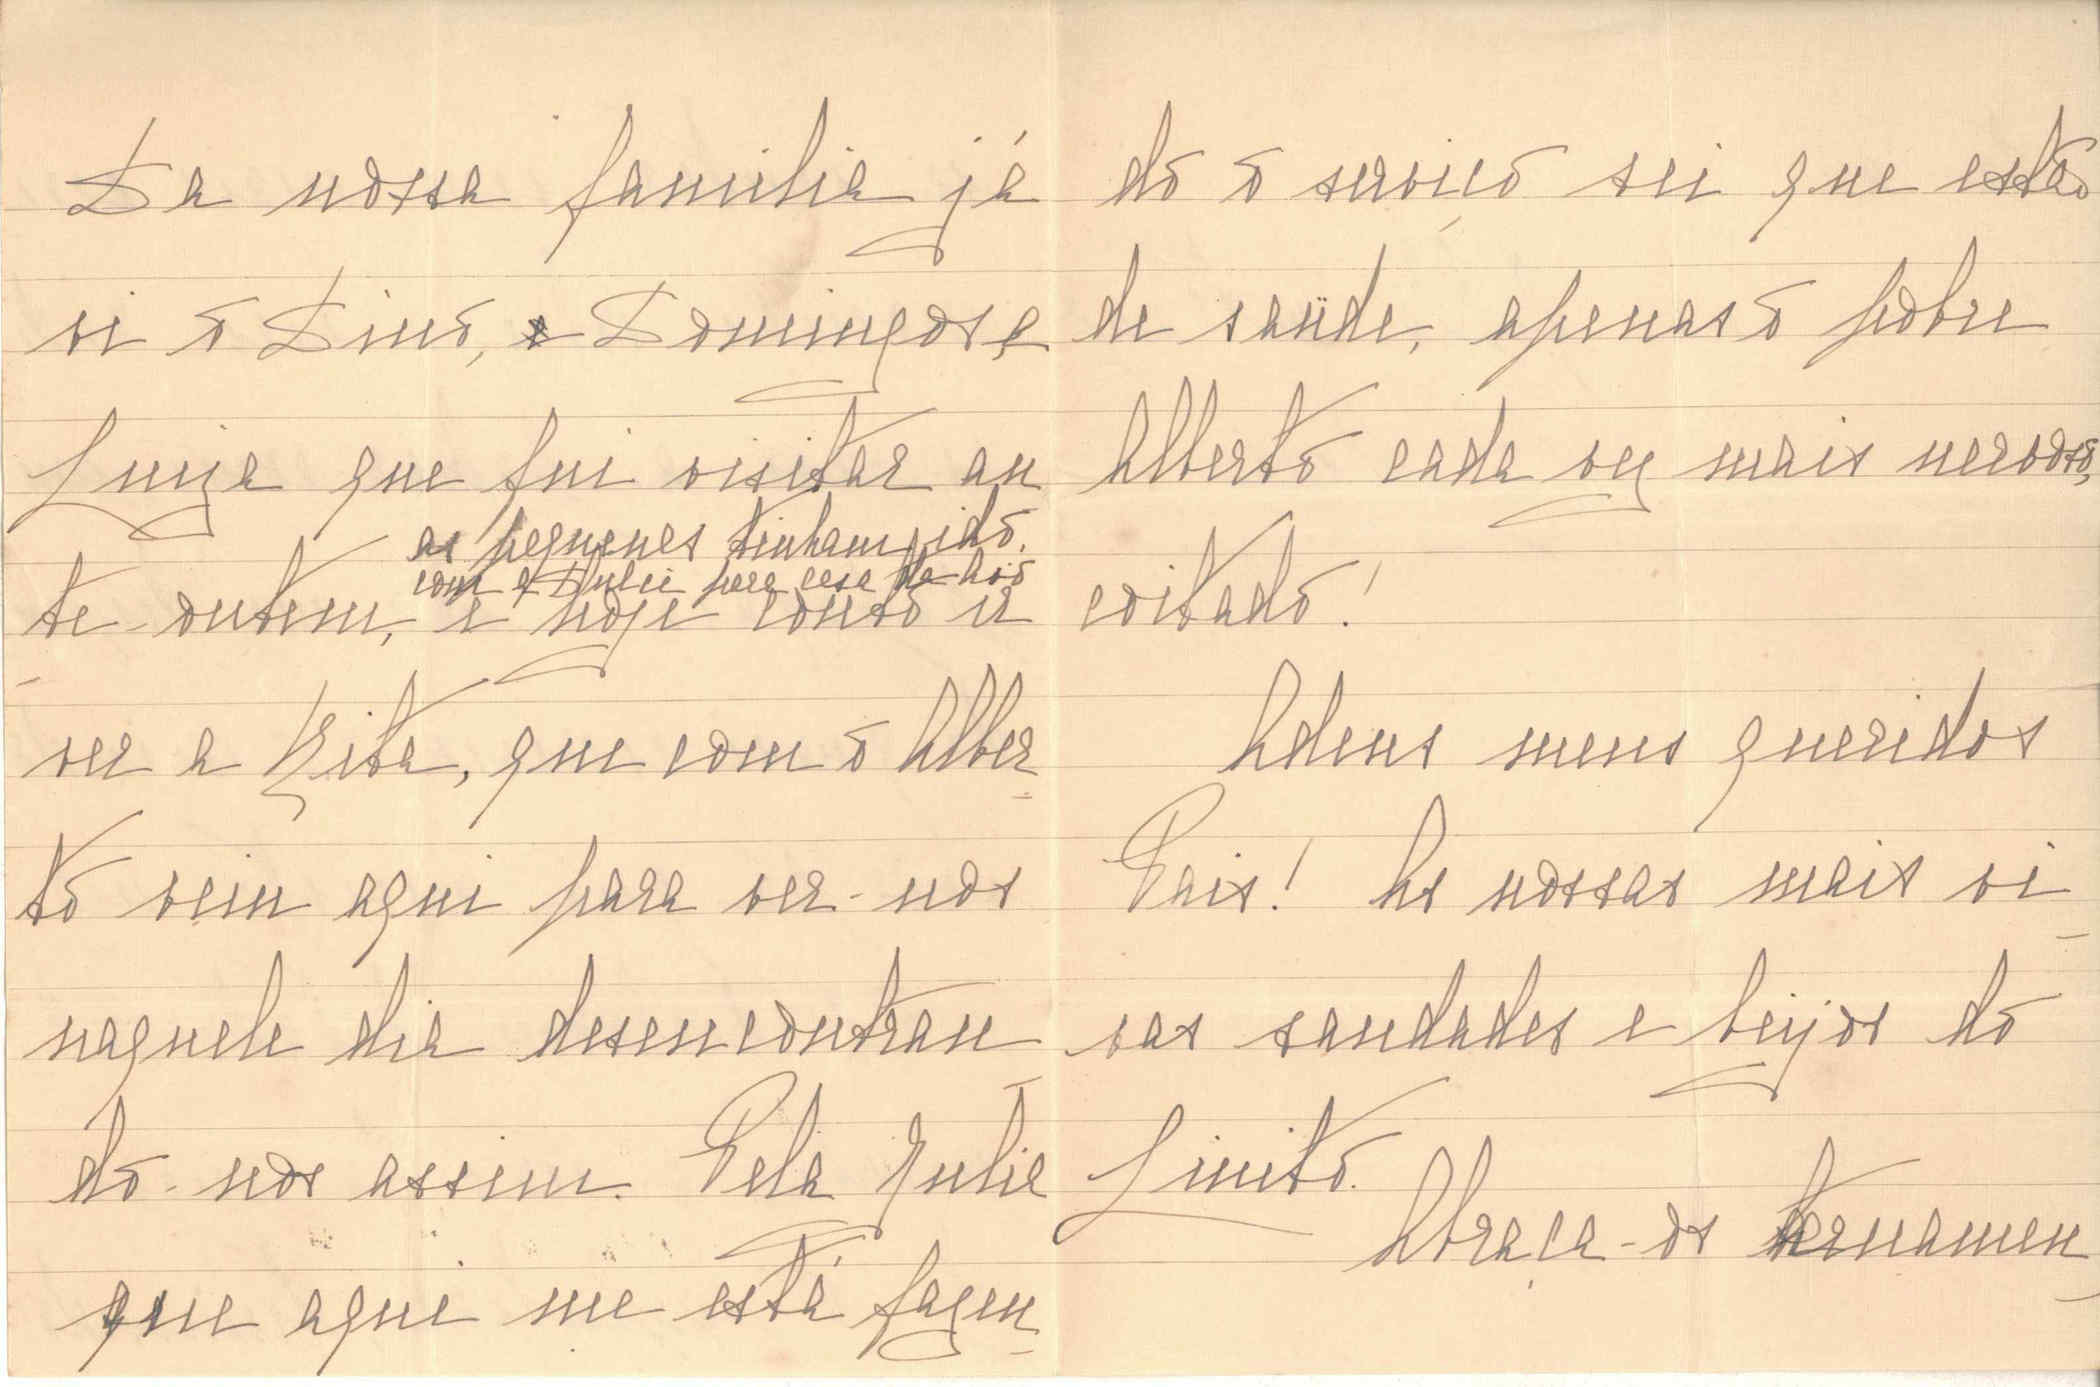 Da nossa familia já
vi o Dino, o Domingos e
Luiza que fui visitar an
te-ontem, e hoje conto ir
as pequenas tinham ido
com a Julia para casa da Avó
ver a Zita, que com o Alber
to veiu aqui para ver-nos
naquele dia desencontran
do-nos assim. Pela Julia
que aqui me está fazen
do o serviço sei que estão
de saúde, apenas o pobre
Alberto cada vez mais nervoso,
coitado!
Adeus meus queridos
Pais! As nossas mais vi
vas saudades e beijos do
Linito.
Abraça-os ternamen